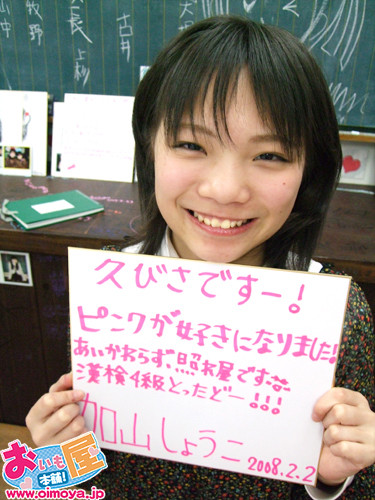 久びさですー!
ピンクが好きになりました!
あいかわらず照れ屋です
漢検4級とったどー!!!
加山しょうこ
2008.2.2
おいも屋
本舗!
www.oimoya.jp